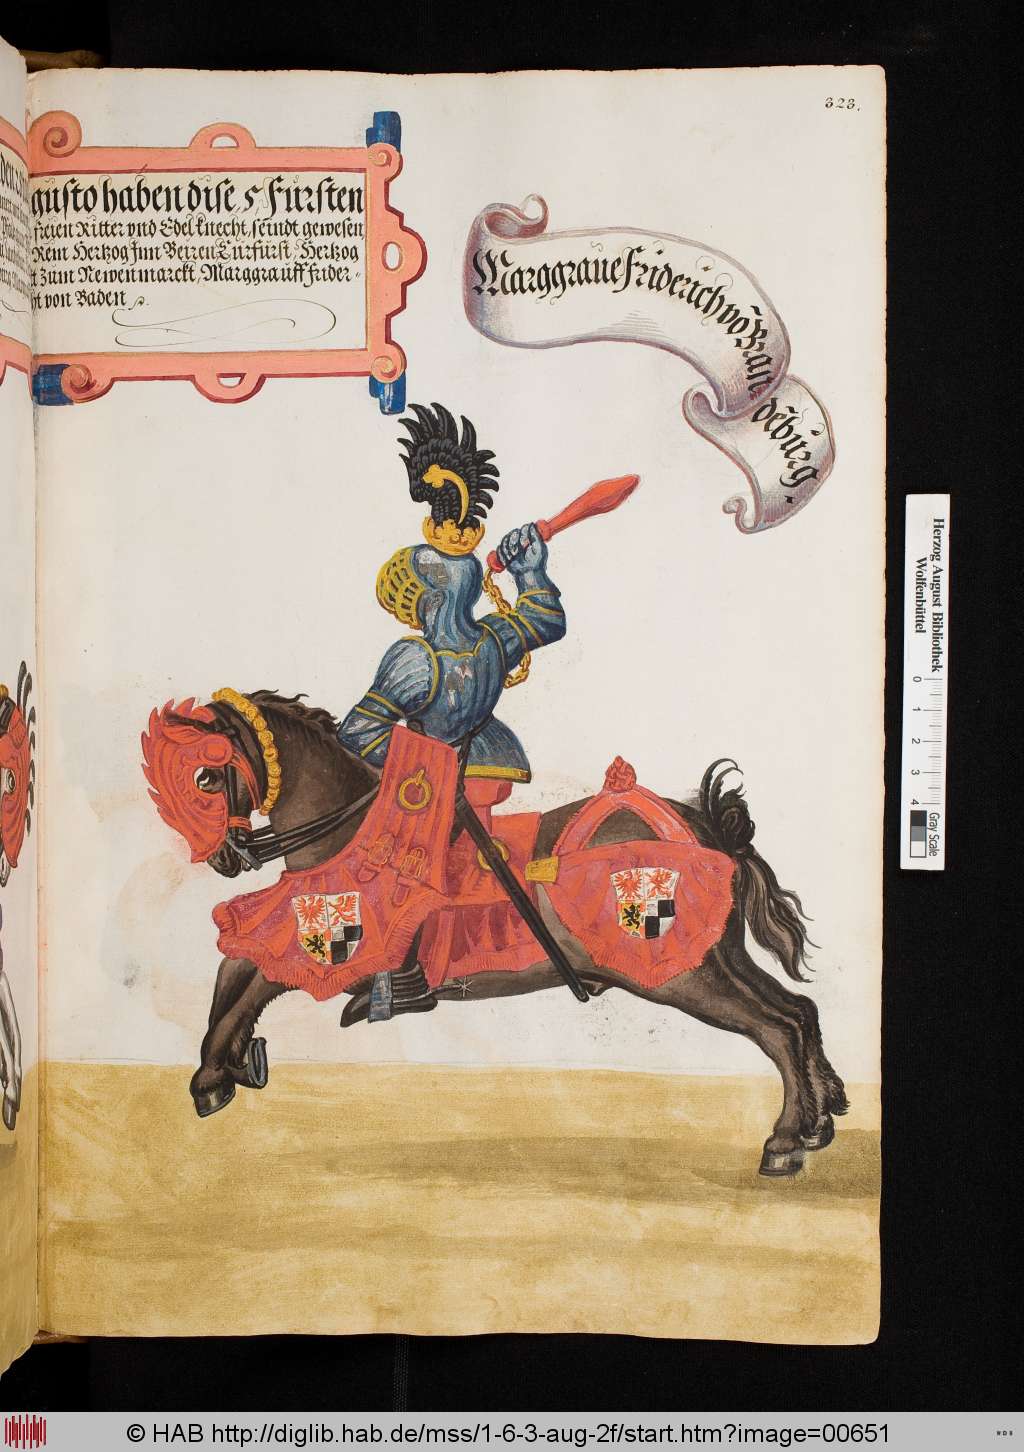 323.
gusto haben dise 5 Fürsten
freien Ritter vnd Edel knecht, seindt gewesen
Rem Hertzog Inn Beiren Curfürst, Hertzog
t Zum Newenmarckt, Marggrauff Frider-
ht von Baden
Marggraue Friderich vō Brandēburg.
Herzog August Bibliothek
Wolfenbüttel
0 1 2 3 4
Gray Scale
© HAB http://diglib.hab.de/mss/1-6-3-aug-2f/start.htm?image=00651